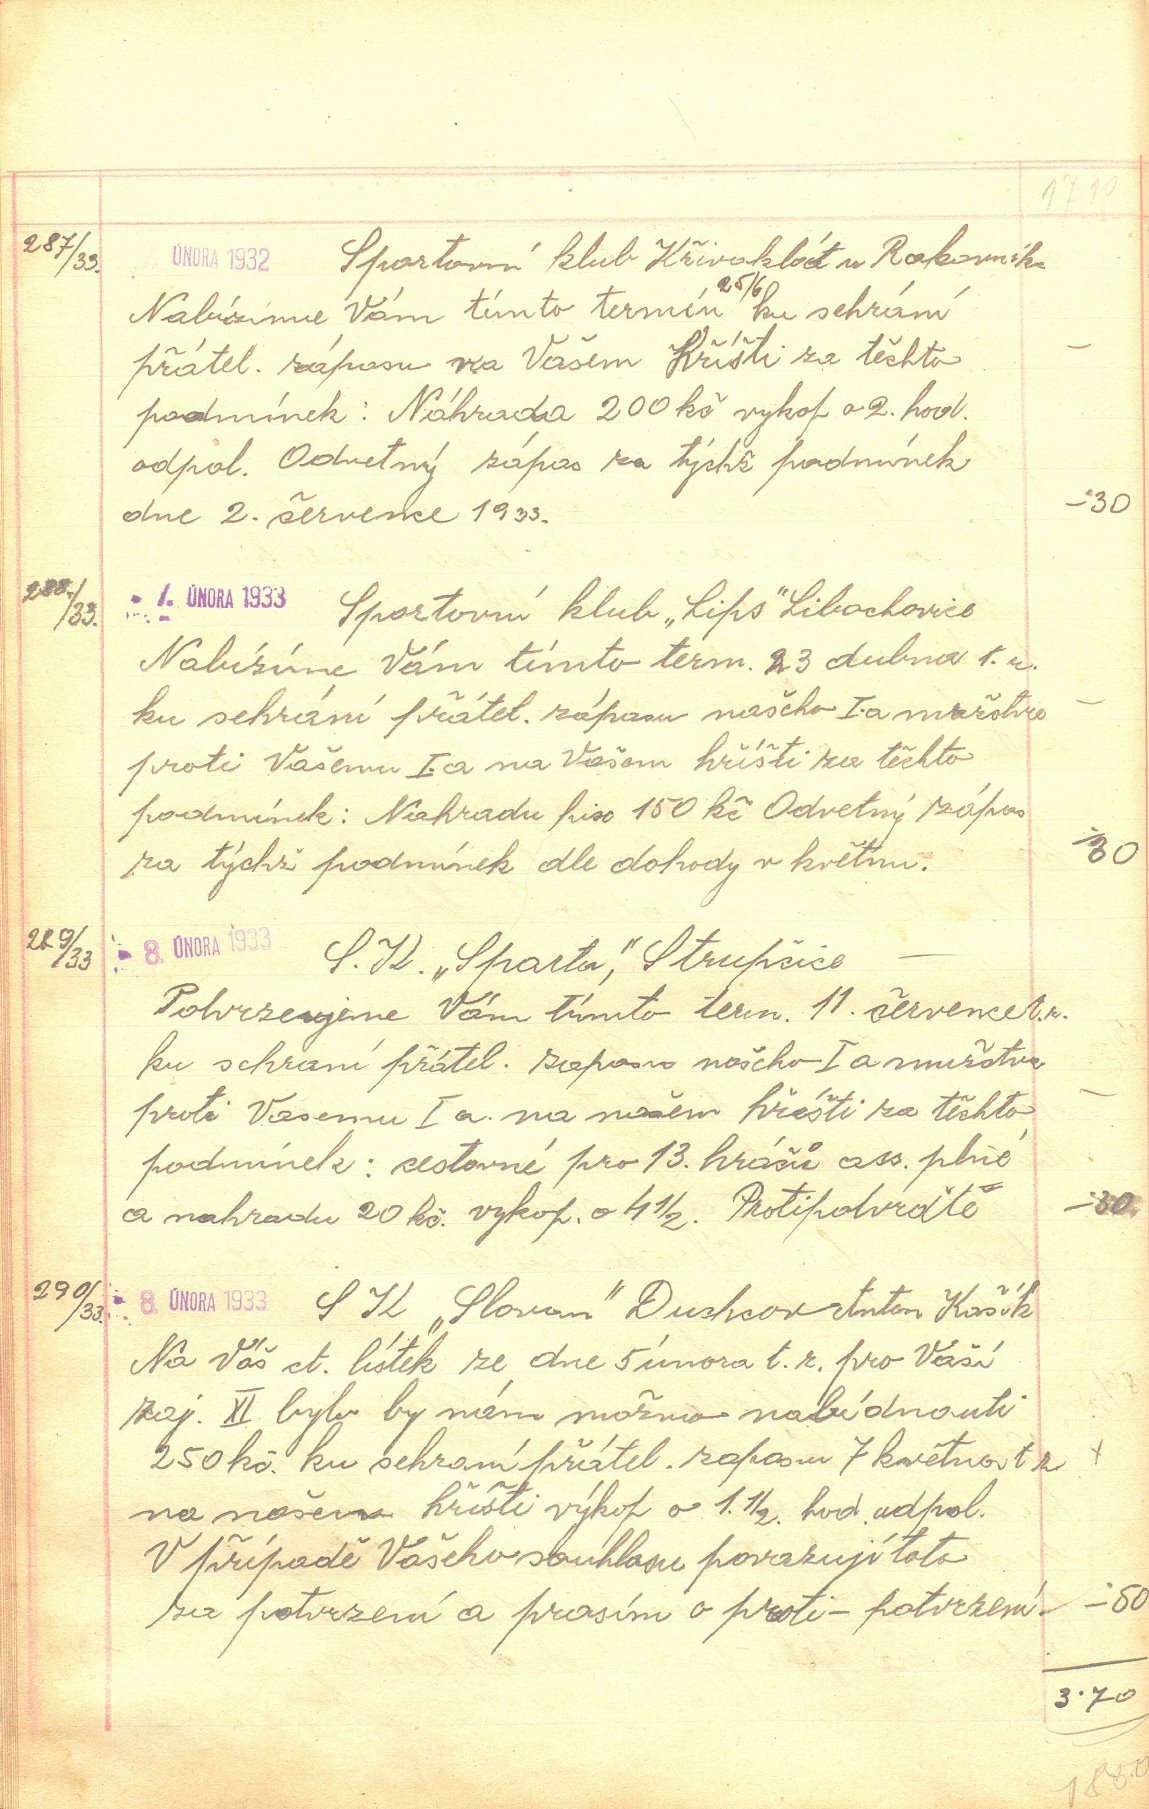 1710
287/33. ÚNORA 1932 Sportovní klub Křivoklát u Rakovníka
Nabízíme Vám tímto termín 25/6 ku sehrání
přátel. zápasu na Vašem Hřišti za těchto
podmínek: Náhrada 200 kč vykop o 2. hod.
odpol. Odvetný zápas za týchž podmínek
dne 2. července 1933.
-·30
288./33. 1. ÚNORA 1933 Sportovní klub „Lips" Libochovice
Nabízíme Vám tímto term. 23 dubna t. r.
ku sehrání přátel. zápasu našeho I.a mužstva
proti Vašemu I.a na Vašem hříšti za těchto
podmínek: Nahradu 150 kč Odvetný zápas
za týchž podmínek dle dohody v květnu.
-·30
289/33 8. ÚNORA 1933 S. K. „Sparta," Strupčice
Potvrzujeme Vám tímto term. 11. července t. r.
ku sehraní přátel. zapasu našeho I a mužstva
proti Vasemu I a. na našem hříšti za těchto
podmínek: cestovné pro 13. hráčů ass. plné
a nahradu 20 kč. vykop. o 4 1/2. Protipotvrďtě
-·30
290/33. 8. ÚNORA 1933 S K „Slovan" Duchcov Anton Kašík
Na Váš ct. lístek ze dne 5 února t. r. pro Vaší
zaj. XI bylo by nám možno nabídnouti
250 kč. ku sehraní přátel. zapasu 7 května t r
na našem hříšti výkop o 1. 1/2. hod. odpol.
V případě Vašeho souhlasu povazují toto
za potvrzení a prosím o proti-potvrzení.
-·50
3·70
1880